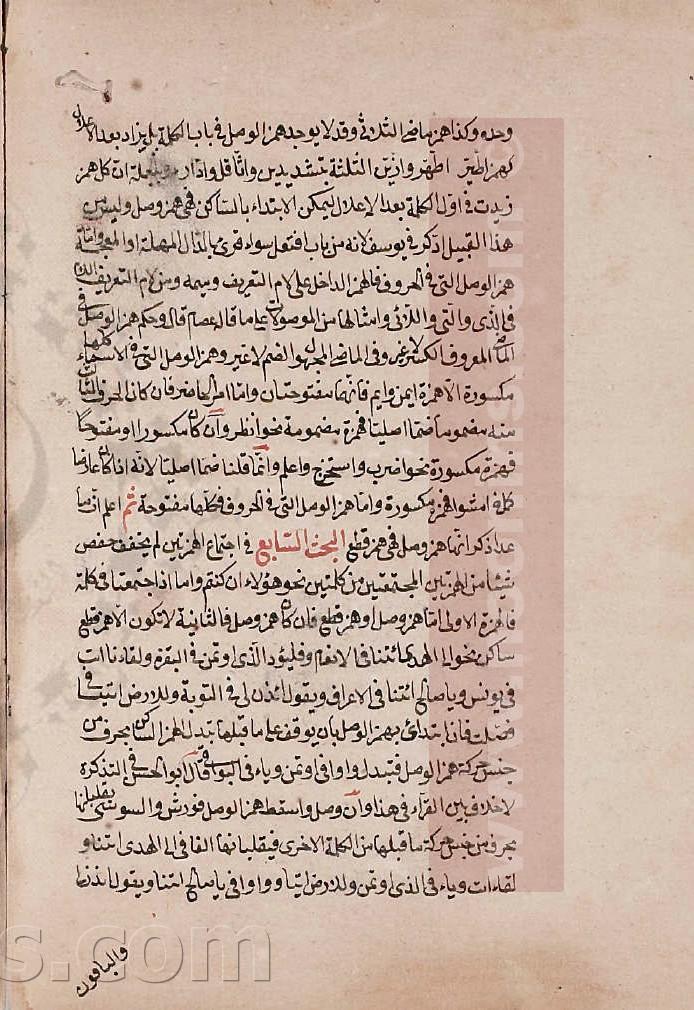 وحده وكذا همز ماضى الثلاثى وقد لا يوجد همز الوصل فى باب الكلمة بل يزاد بعد الاعلال
كهمز اطير اطهر وازين الثلثة بتشديدين واثاقل وادارء وبالجملة ان كل همز
زيدت فى اول الكلمة بعد الاعلال ليمكن الابتداء بالساكن فهى همز وصل وليس من
هذا القبيل اذكر فى يوسف لانه من باب افتعل سواء قرئ بالدال المهملة او المعجمة واما
همز الوصل التى فى الحروف فالهمز الداخل على لام التعريف وميمه ومن لام التعريف
فى الذى والتى واللائى وامثالها من الموصولات على ما قال عصام قال وحكم همز الوصل فى
الماضى المعروف الكسر لا غير وفى الماضى المجهول الضم لا غير وهمز الوصل التى فى الاسماء كلها
مكسورة الا همزة ايمن وايم فانهما مفتوحتان واما امر الحاضر فان كان الحرف الثالث
منه مضموما ضما اصليا فهمزة مضمومة نحو انظر وان كان مكسورا او مفتوحا
فهمزة مكسورة نحو اضرب واستخرج واعلم وانما قلنا ضما اصليا لانه اذا كان عارضا
كما فى امشوا فهمزة مكسورة واما همز الوصل التى فى الحروف فكلها مفتوحة ثم اعلم ان ما
عدا ذكر انها همز وصل فهى همز قطع البحث السابع فى اجتماع الهمزتين لم يخفف حفص
شيئا من الهمزتين المجتمعتين من كلمتين نحو هؤلاء ان كنتم واما اذا اجتمعتا فى كلمة
فالهمزة الاولى اما همز وصل او همز قطع فان كان همز وصل فالثانية لا تكون الا همز قطع
ساكن نحو الى الهدى ائتنا فى الانعام وفليؤد الذى اوتمن فى البقرة ولقاءنا ائت
فى يونس ويا صالح ائتنا فى الاعراف ويقول ائذن لى فى التوبة وللارض ائتيا فى
فصلت فاذا ابتدئ بهمز الوصل بان يوقف على ما قبلها تبدل الهمز الساكن بحرف من
جنس حركة همز الوصل فتبدل واوا فى اوتمن وياء فى البواقى قال ابو الحسن فى التذكرة
لا خلاف بين القراء فى هذا وان وصل واسقط همز الوصل فورش والسوسى يقلبانها
بحرف من جنس حركة ما قبلها من الكلمة الاخرى فيقلبانها الفا فى الى الهدى ائتنا و
لقاءنا ائت وياء فى الذى اوتمن وللارض ائتيا وواوا فى يا صالح ائتنا ويقول ائذن لى
والباقون
s.com